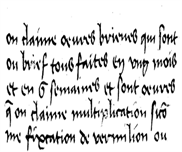 on claime oeures brieues qui sont
ou brief tous faites en vng mois
et en 6 semaines et sont oeures
q̃ on claime multiplication sicõ
me fixcation de vermilion ou